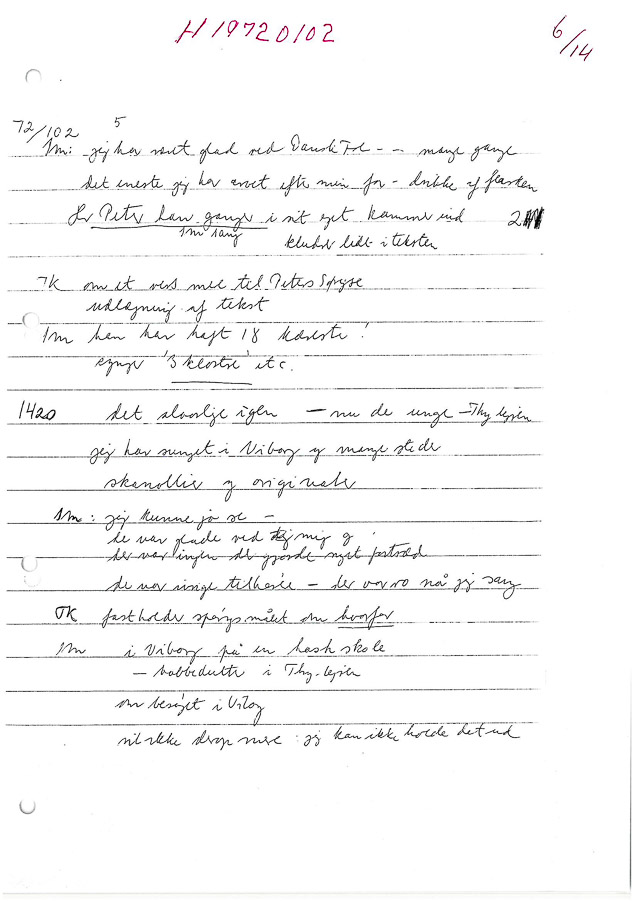 H 19720102
6/14
72/102 5
Im: jeg har været glad ved Dansk Fol - - mange gange
det eneste jeg har arvet efter min far - drikke af flasken
Hr Peter han ganger i sit eget kammer ind 2
Im sang kludrer lidt i teksten
TK om et vers mer til Peters Spyse
udlægning af tekst
Im hen har haft 18 kæreste!
synger '3 klostre' etc.
1420 det alvorlige igen - nu de unge - Thy lejren
jeg har sunget i Viborg og mange steder
skandller og originaler
Im: jeg kunne jo se -
de var glade ved mig og
der var ingen der gjorde noget fortræd
de var ivrige tilhørere - der var ro når jeg sang
TK fastholder spørgsmålet om hvorfor
Im i Viborg på en hash skole
- i Thy-lejren
om besøget i Viborg
vil ikke derop mere: jeg kan ikke holde det ud